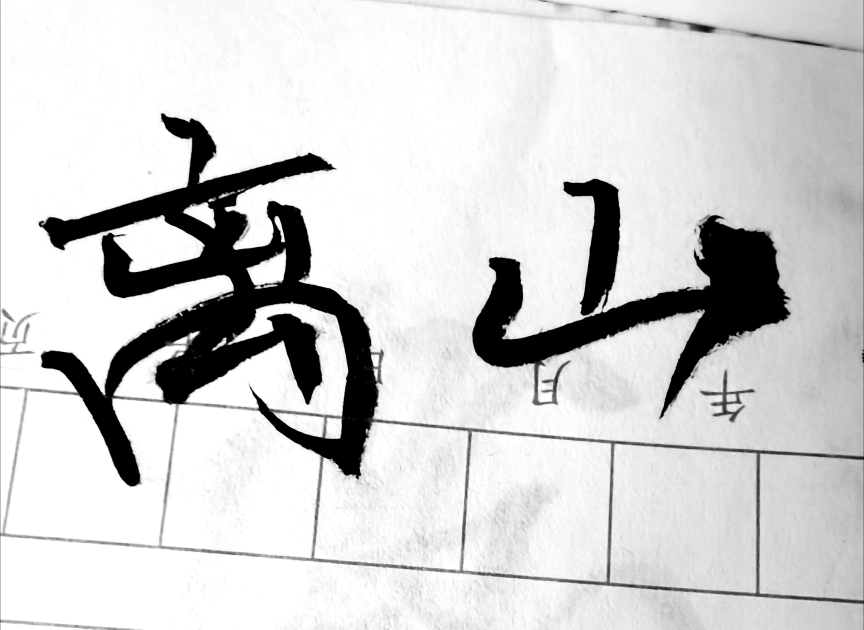 离山
年 月 日